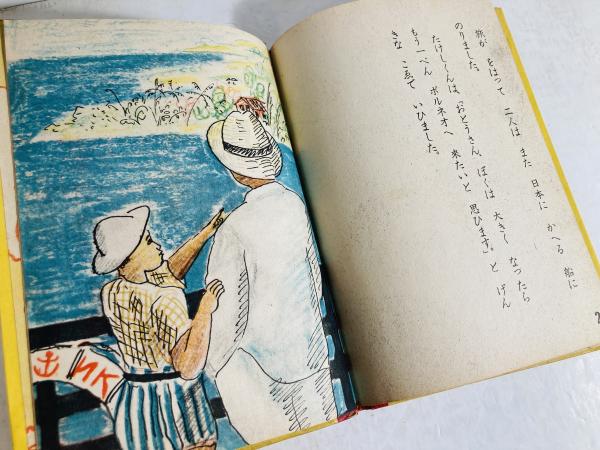 旅が をはつて 二人は また 日本に かへる 船に
のりました。
たけしくんは、「おとうさん、ぼくは 大きく なつたら
もう一ぺん ボルネオへ 来たいと 思ひます」。と げん
きな こゑで いひました。
ИK